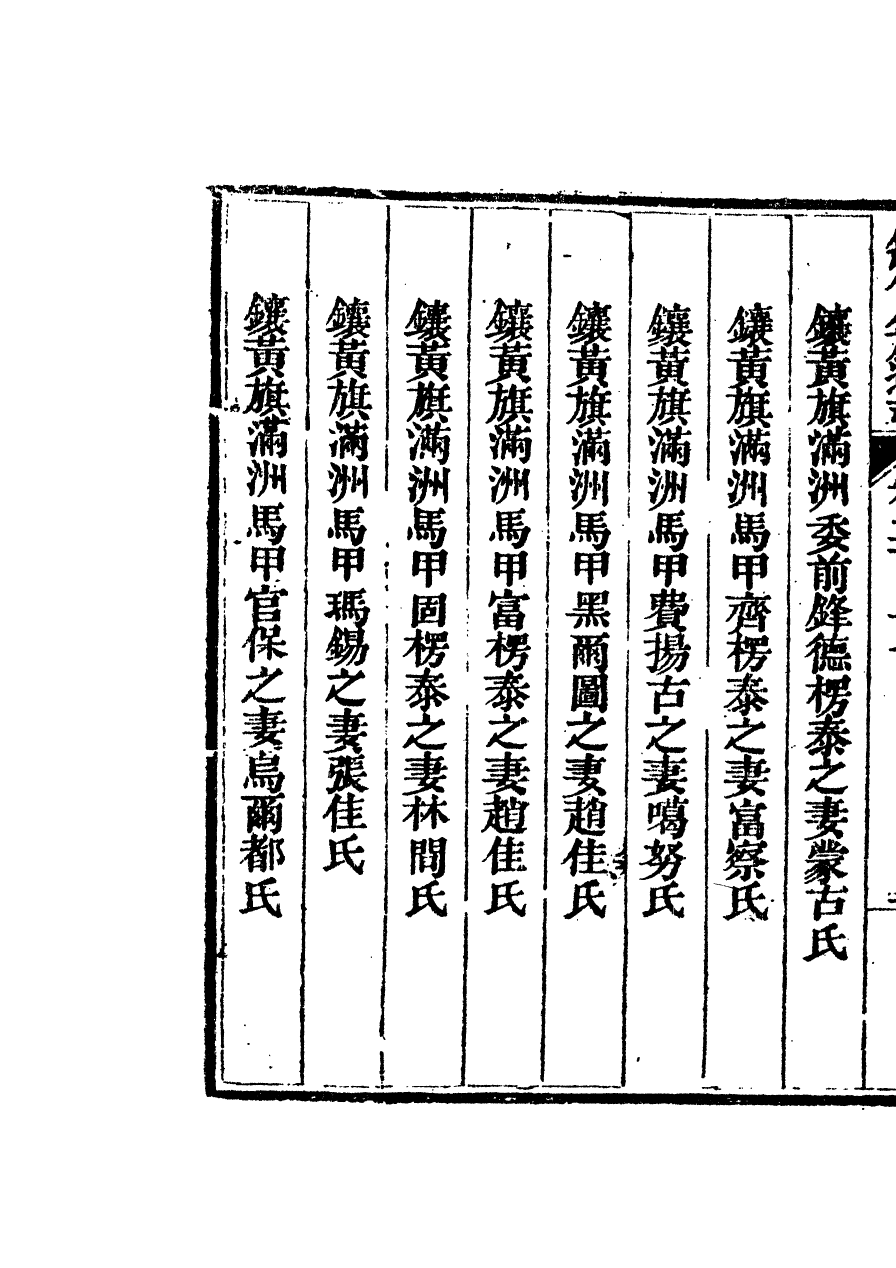 鑲黃旗滿洲委前鋒德楞泰之妻蒙古氏
鑲黃旗滿洲馬甲齊楞泰之妻富察氏
鑲黃旗滿洲馬甲費揚古之妻噶努氏
鑲黃旗滿洲馬甲黑爾圖之妻趙佳氏
鑲黃旗滿洲馬甲富楞泰之妻趙佳氏
鑲黃旗滿洲馬甲固楞泰之妻林間氏
鑲黃旗滿洲馬甲瑪錫之妻張佳氏
鑲黃旗滿洲馬甲官保之妻烏爾都氏